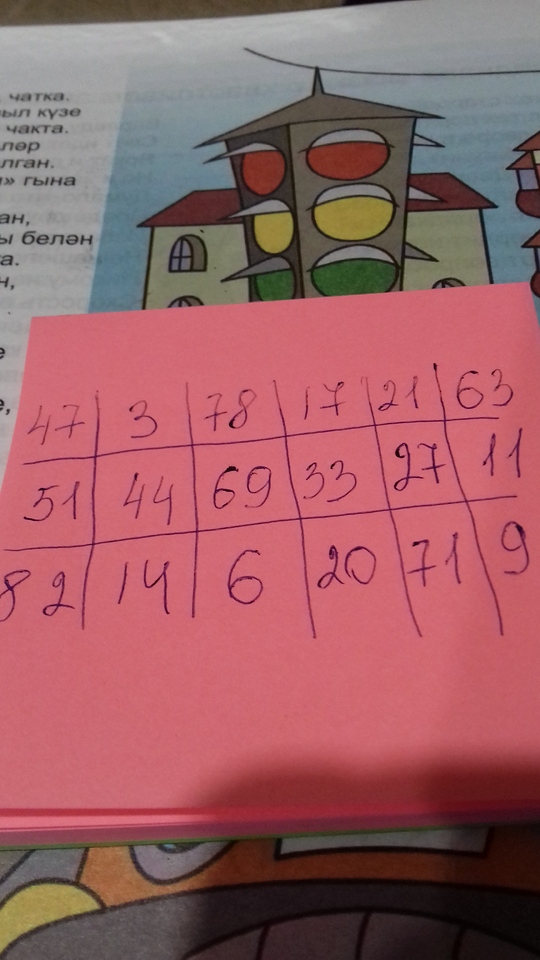 чатка.
ыл күзе
чакта.
ләр
лган.
» гына
ан,
ы белән
а.
н,
е
е,
47 3 78 17 21 63
51 44 69 33 27 11
82 14 6 20 71 9